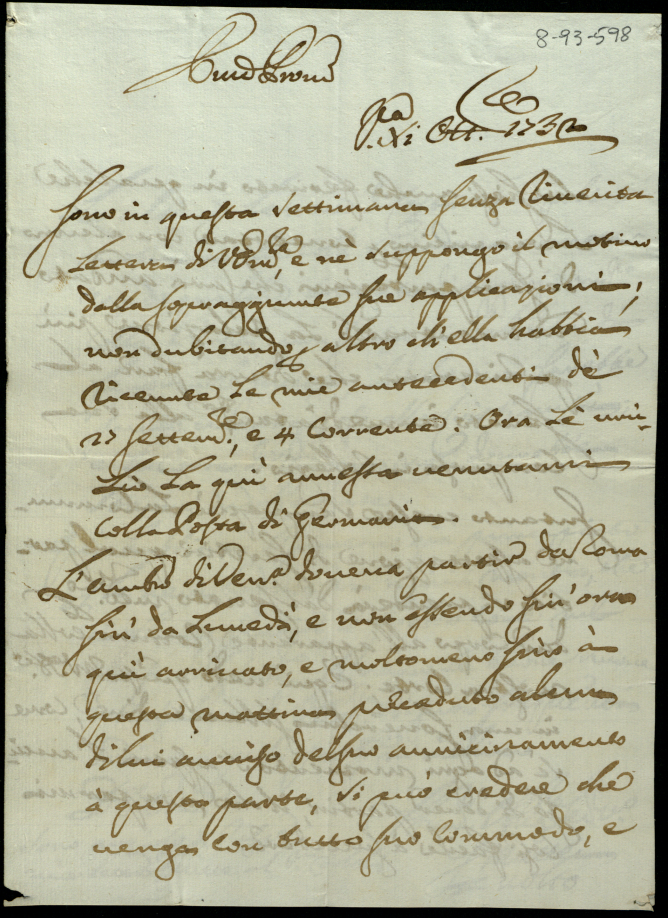 8-93-598
Xi Ott. 1732
Sono in questa settimana senza riverita
Lettera di V, e nè suppongo il motivo
dalla sopraggiunte sue applicazioni,
non dubitando altro ch'ella habbia
ricevute le mie antecedenti dè
27 Settem.e, e 4 Corrente. Ora Lè
La qui annessa venutami
Colla Posta di Germania.
L'Amb.r di Ven.a doveva partir da Roma
sin da Lunedì, e non essendo sin ora
qui arrivato, e molto meno sino à
questa mattina preceduto alcun
di lui avviso del suo avvicinamento
à questa parte, si può credere che
venga con tutto suo Commodo, e